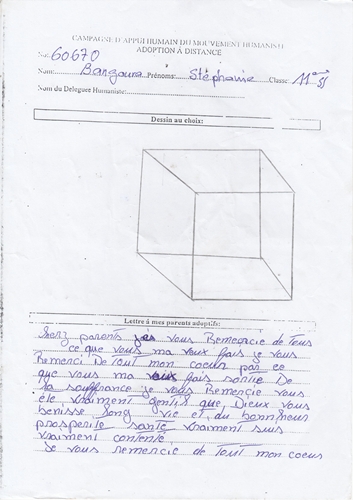 CAMPAGNE D'APPUI HUMAIN DU MOUVEMENT HUMANISTE
ADOPTION À DISTANCE
No: 60670
Nom: Bangoura Prénoms: Stéphanie Classe 11e
Nom du Délégué Humaniste:
Dessin au choix:
Lettre à mes parents adoptifs:
parents je vous Remercie de Tous
ce que vous ma vaux fais je vous
Remerci De Tout mon coeur par ce
que vous ma fais sortie De
la souffrance je vous Remercie vous
ète vraiment gentis que Dieux vous
benisse long vie et du bonheur
prosperite santé vraiment suis
vraiment contente
Je vous remercie de Tout mon coeur